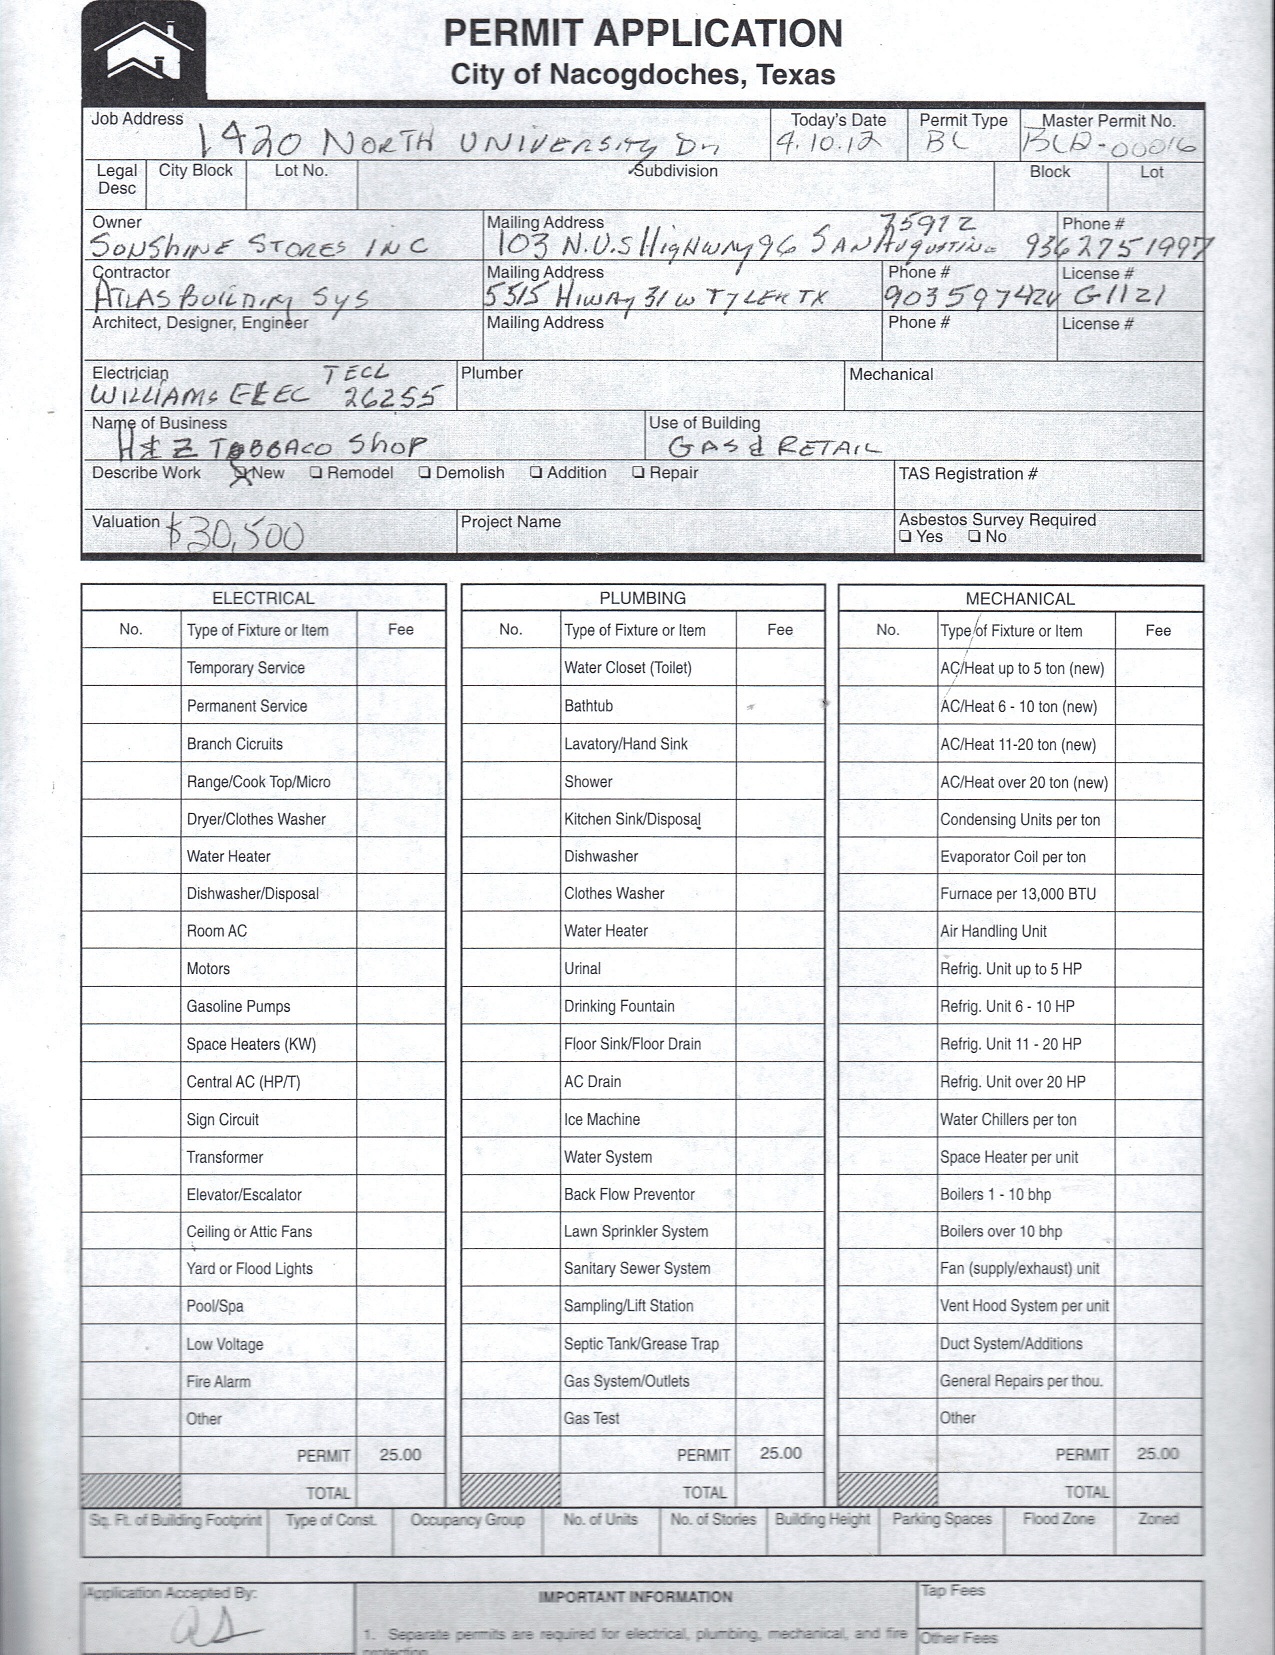 PERMIT APPLICATION
City of Nacogdoches, Texas
Job Address 1420 NORTH UNIVERSITY Dr
Today's Date 4.10.12
Permit Type BL
Master Permit No. BLD-00016
Legal Desc
City Block
Lot No.
Subdivision
Block
Lot
Owner SONSHINE STORES INC
Mailing Address 103 N. U.S HIGHWAY 96 SAN AUGUSTINE 75972
Phone # 936 275 1997
Contractor ATLAS BUILDING SYS
Mailing Address 5515 HIWAY 31 W TYLER TX
Phone # 903 597
License # G1121
Architect, Designer, Engineer
Mailing Address
Phone #
License #
Electrician WILLIAMS ELEC TECL 26255
Plumber
Mechanical
Name of Business H & Z TOBBACO SHOP
Use of Building GAS & RETAIL
Describe Work New Remodel Demolish Addition Repair
TAS Registration #
Valuation $30,500
Project Name
Asbestos Survey Required
Yes No
ELECTRICAL
No. Type of Fixture or Item Fee
Temporary Service
Permanent Service
Branch Cicruits
Range/Cook Top/Micro
Dryer/Clothes Washer
Water Heater
Dishwasher/Disposal
Room AC
Motors
Gasoline Pumps
Space Heaters (KW)
Central AC (HP/T)
Sign Circuit
Transformer
Elevator/Escalator
Ceiling or Attic Fans
Yard or Flood Lights
Pool/Spa
Low Voltage
Fire Alarm
Other
PERMIT 25.00
TOTAL
PLUMBING
No. Type of Fixture or Item Fee
Water Closet (Toilet)
Bathtub
Lavatory/Hand Sink
Shower
Kitchen Sink/Disposal
Dishwasher
Clothes Washer
Water Heater
Urinal
Drinking Fountain
Floor Sink/Floor Drain
AC Drain
Ice Machine
Water System
Back Flow Preventor
Lawn Sprinkler System
Sanitary Sewer System
Sampling/Lift Station
Septic Tank/Grease Trap
Gas System/Outlets
Gas Test
PERMIT 25.00
TOTAL
MECHANICAL
No. Type of Fixture or Item Fee
AC/Heat up to 5 ton (new)
AC/Heat 6 - 10 ton (new)
AC/Heat 11-20 ton (new)
AC/Heat over 20 ton (new)
Condensing Units per ton
Evaporator Coil per ton
Furnace per 13,000 BTU
Air Handling Unit
Refrig. Unit up to 5 HP
Refrig. Unit 6 - 10 HP
Refrig. Unit 11 - 20 HP
Refrig. Unit over 20 HP
Water Chillers per ton
Space Heater per unit
Boilers 1 - 10 bhp
Boilers over 10 bhp
Fan (supply/exhaust) unit
Vent Hood System per unit
Duct System/Additions
General Repairs per thou.
Other
PERMIT 25.00
TOTAL
Sq. Ft. of Building Footprint
Type of Const.
Occupancy Group
No. of Units
No. of Stories
Building Height
Parking Spaces
Flood Zone
Zoned
Application Accepted By:
IMPORTANT INFORMATION
1. Separate permits are required for electrical, plumbing, mechanical, and fire
Tap Fees
Other Fees